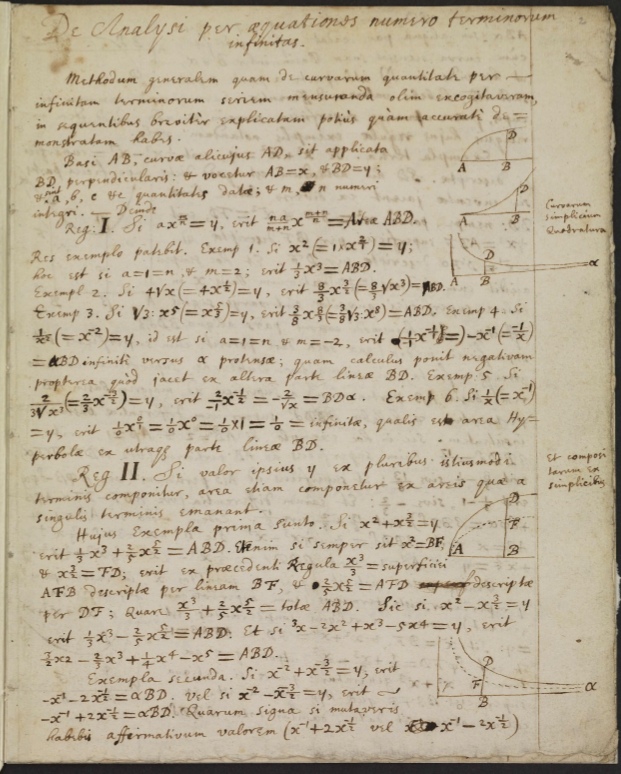 De Analysi per æquationes numero terminorum
infinitas.
Methodum generalem quam de curvarum quantitate per
infinitam terminorum seriem mensuranda olim excogitaveram,
in sequentibus breviter explicatam potius quam accurate de=
monstratam habes.
Basi AB, curvæ alicujus AD, sit applicata
BD perpendicularis: & vocetur AB=x, & BD=y;
& sint a, b, c &c quantitates datæ; & m, n numeri
integri. Deinde
Reg: I. Si ax^{m/n}=y, erit \frac{na}{m+n}x^{\frac{m+n}{n}}=Areæ ABD.
Curvarum
simplicium
Quadratura
Res exemplo patebit. Exemp 1. Si x²(=1×x^{2/1})=y;
hoc est si a=1=n, & m=2; erit ⅓x³=ABD.
Exempl 2. Si 4√x(=4x^{1/2})=y, erit 8/3 x^{3/2}(=8/3 √x³)=ABD.
Exemp 3. Si √3:x⁵(=x^{5/3})=y, erit 3/8 x^{8/3}(=3/8 √3:x⁸)=ABD. Exemp 4. Si
1/x²(=x⁻²)=y, id est si a=1=n & m=-2, erit (1/-1 x^{-1/1}=)-x⁻¹(=-1/x)
=αBD infinite versus α protensæ; quam calculus ponit negativam
propterea quod jacet ex altera parte lineæ BD. Exemp. 5. Si
2/3√x³(=2/3 x^{-3/2})=y, erit 2/-1 x^{-1/2}=-2/√x=BDα. Exemp 6. Si 1/x(=x⁻¹)
=y, erit 1/0 x^{0/1}=1/0 x⁰=1/0×1=1/0=infinitæ, qualis est area Hy=
perbolæ ex utraq; parte lineæ BD.
Reg II. Si valor ipsius y ex pluribus istiusmodi
terminis componitur, area etiam componetur ex areis quæ a
singulis terminis emanant.
Et composi
tarum ex
simplicibus
Hujus Exempla prima sunto. Si x²+x^{3/2}=y
erit ⅓x³+2/5 x^{5/2}=ABD. Etenim si semper sit x²=BF,
& x^{3/2}=FD; erit ex præcedenti Regula x³/3=superficiei
AFB descriptæ per lineam BF, & 2/5 x^{5/2}=AFD descriptæ
per DF; Quare x³/3+2/5 x^{5/2}=totæ ABD. Sic si x²-x^{3/2}=y
erit ⅓x³-2/5 x^{5/2}=ABD. Et si 3x-2x²+x³-5x4=y, erit
3/2 x2-2/3 x³+1/4 x⁴-x⁵=ABD.
Exempla secunda. Si x⁻²+x^{-3/2}=y, erit
-x⁻¹-2x^{-1/2}=αBD. Vel si x⁻²-x^{-3/2}=y, erit
-x⁻¹+2x^{-1/2}=αBD. Quarum signa si mutaveris
habebis affirmativum valorem (x⁻¹+2x^{-1/2} vel x⁻¹-2x^{-1/2})